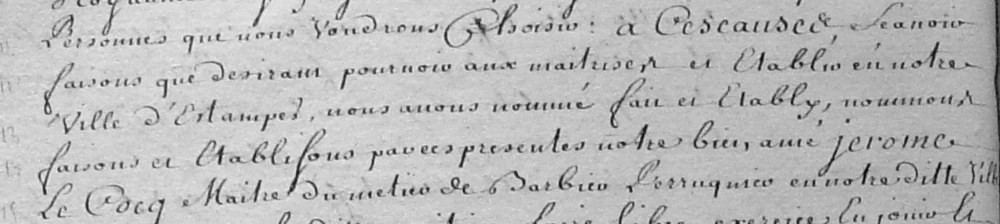 Personnes que nous Voudrons Choisir : a Ces causes, sçavoir
faisons que desirant pourvoir aux maitrises et Etablir en notre
Ville d'Estampes, nous avons nommé fait et Etably, nommons
faisons et Etablissons par ces presentes notre bien amé jerome
Le Cocq Maitre du metier de Barbier Perruquier en notre ditte Ville
faire libre exercer, Enjoint